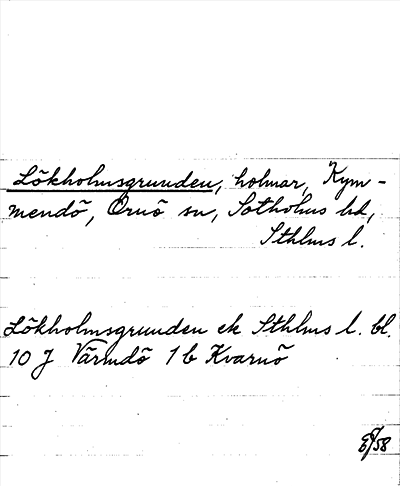 Lökholmsgrunden, holmar, Kym-
mendö, Ornö sn, Sotholms hd,
Sthlms l.
Lökholmsgrunden ek Sthlms l. bl.
10 J Värmdö 1 b Kvarnö